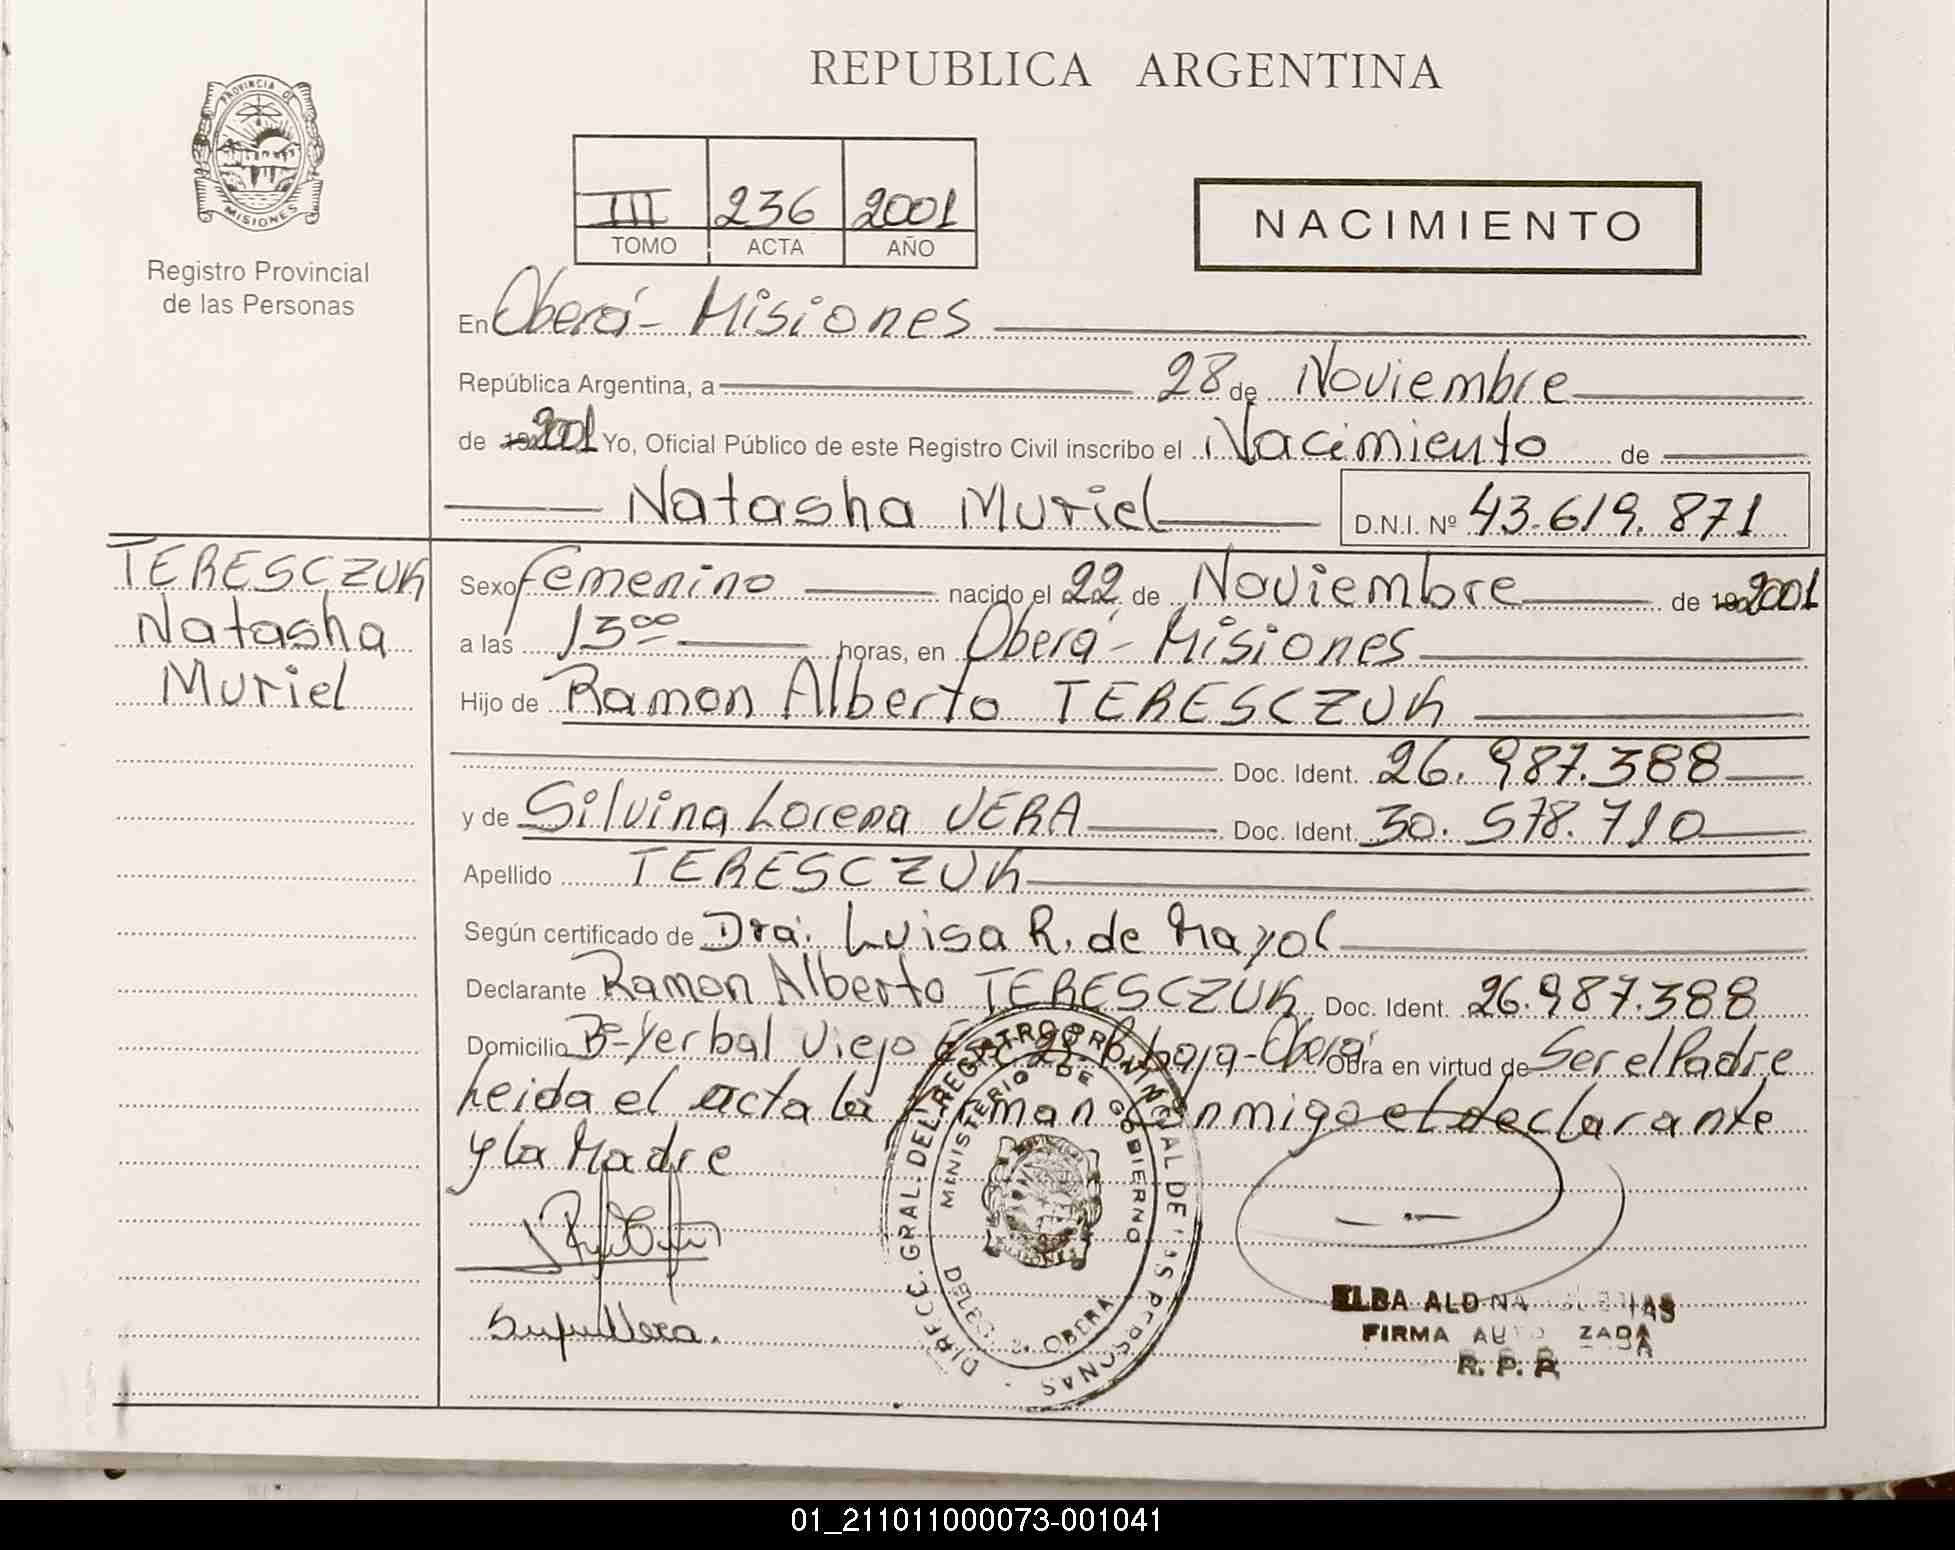 REPUBLICA ARGENTINA
PROVINCIA DE
MISIONES
Registro Provincial
de las Personas
III 236 2001
TOMO ACTA AÑO
NACIMIENTO
En Oberá - Misiones
República Argentina, a 28 de Noviembre
de 2001 Yo, Oficial Público de este Registro Civil inscribo el Nacimiento de
Natasha Muriel D.N.I. Nº 43.619.871
TERESCZUK
Natasha
Muriel
Sexo femenino nacido el 22 de Noviembre de 2001
a las 13 00 horas, en Oberá - Misiones
Hijo de Ramon Alberto TERESCZUK
Doc. Ident. 26.987.388
y de Silvina Lorena VERA Doc. Ident. 30.578.710
Apellido TERESCZUK
Según certificado de Dra. Luisa R. de Mayol
Declarante Ramon Alberto TERESCZUK Doc. Ident. 26.987.388
Domicilio Bº Yerbal Viejo - Oberá Obra en virtud de Ser el Padre
Leida el acta la firman conmigo el declarante
y la Madre
DIRECC. GRAL. DEL REGISTRO PROVINCIAL DE LAS PERSONAS
MINISTERIO DE GOBIERNO
OBERA
ELBA ALDINA
FIRMA AUTORIZADA
R. P. P.
01_211011000073-001041